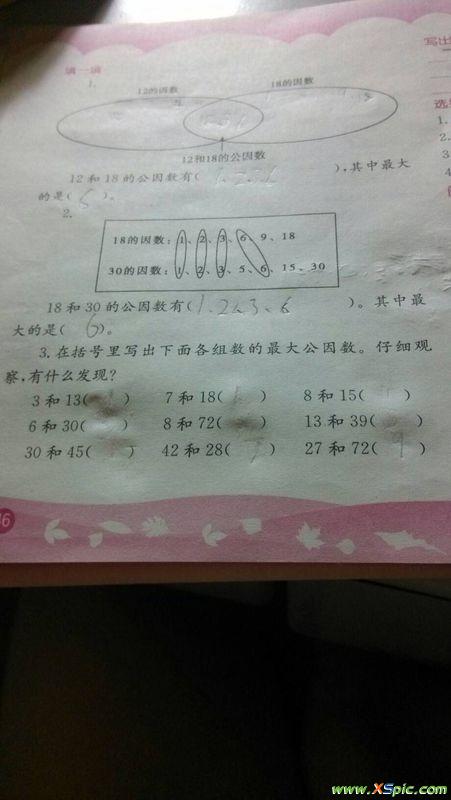 填一填
写出
1.
12的因数
18的因数
选
1.
2
3
4
12和18的公因数
12和18的公因数有(1、2、3、6),其中最大
的是(6)。
2.
18的因数:1、2、3、6、9、18
30的因数:1、2、3、5、6、15、30
18和30的公因数有(1、2、3、6)。其中最
大的是(6)。
3.在括号里写出下面各组数的最大公因数。仔细观
察,有什么发现?
3和13( ) 7和18( ) 8和15( )
6和30( ) 8和72( ) 13和39( )
30和45( ) 42和28( ) 27和72(9)
46
www.XSpic.com